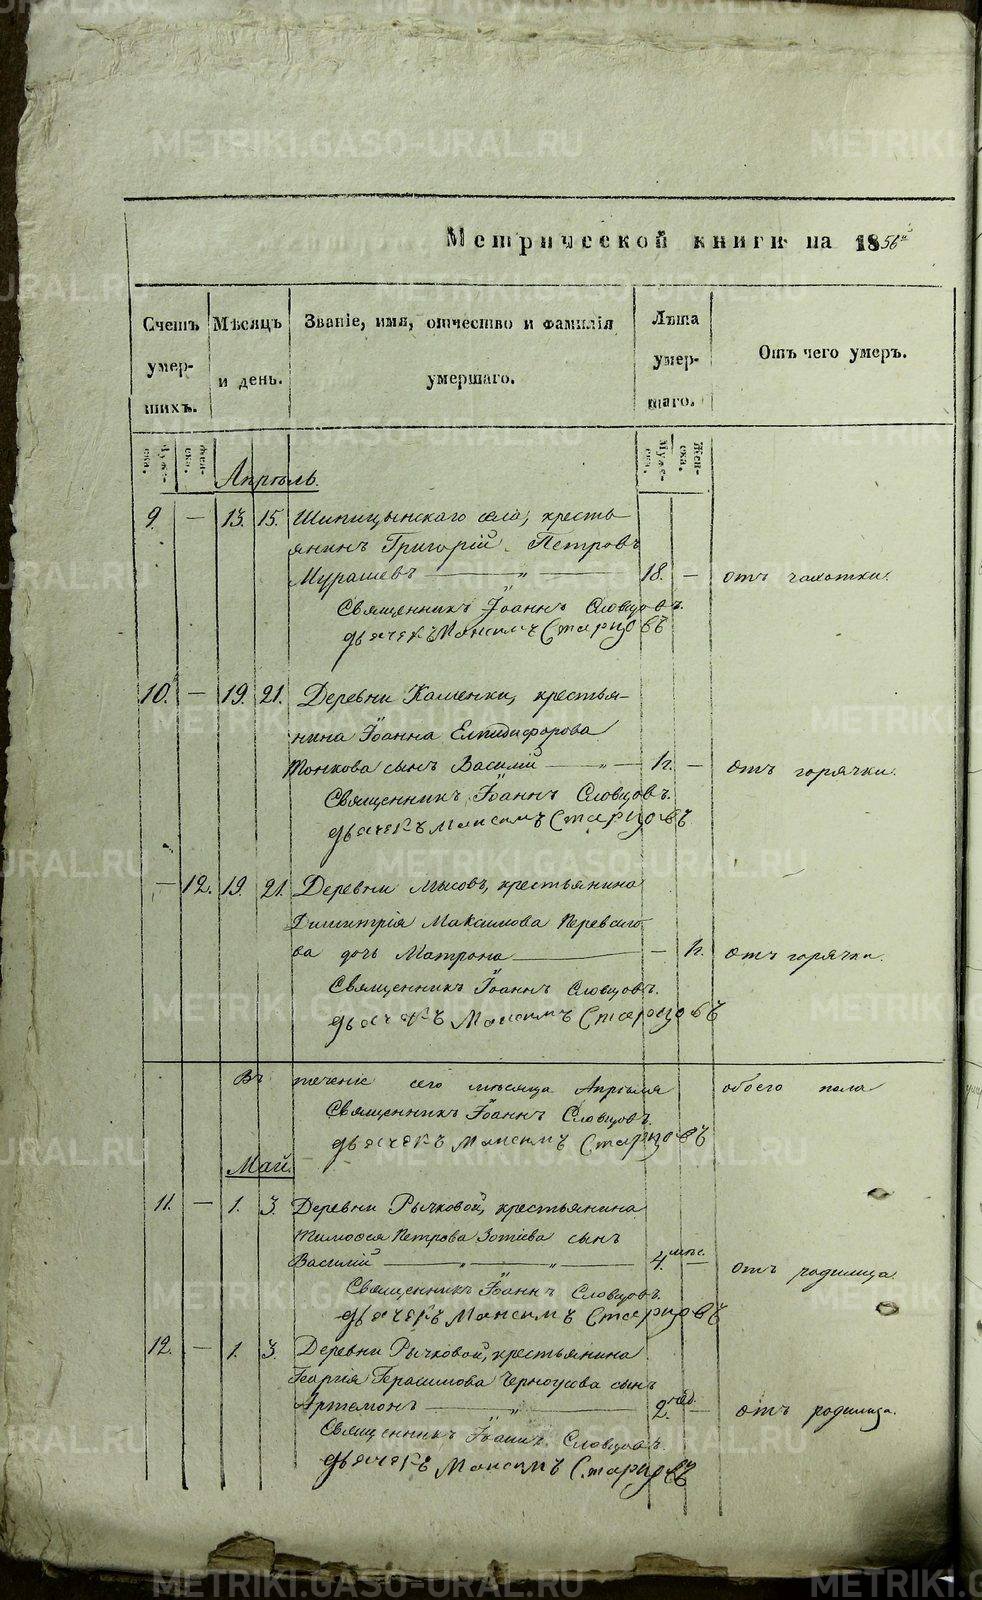 METRIKI.GASO-URAL.RU
Метрической книги на 1856й
Счетъ умер-шихъ.
Мѣсяцъ и день.
Званіе, имя, отчество и фамилія умершаго.
Лѣта умер-шаго.
Отъ чего умеръ.
Муже-ска. Жен-ска.
Муже-ска. Жен-ска.
Апрѣль.
9. — 13. 15. Шипицынскаго села, кресть-
янинъ Григорій Петровъ
Мурашевъ — „ — 18. — отъ чахотки.
Священникъ Іоаннъ Словцовъ.
дьячекъ Максимъ Старцовъ
10. — 19. 21. Деревни Каменки, крестья-
нина Іоанна Елпидифорова
Тонкова сынъ Василій — „ — 1г. — отъ горячки.
Священникъ Іоаннъ Словцовъ.
дьячекъ Максимъ Старцовъ
— 12. 19 21. Деревни Мысовъ, крестьянина
Димитрія Максимова Перевало-
ва дочь Матрона — — 1г. отъ горячки.
Священникъ Іоаннъ Словцовъ.
дьячекъ Максимъ Старцовъ
Въ теченіе сего мѣсяца Апрѣля обоего пола
Священникъ Іоаннъ Словцовъ.
дьячекъ Максимъ Старцовъ
Май.
11. — 1. 3. Деревни Рычковой, крестьянина
Тимофея Петрова Зотѣева сынъ
Василій — „ — „ — 4. мѣс. — отъ родимца
Священникъ Іоаннъ Словцовъ.
дьячекъ Максимъ Старцовъ
12. — 1. 3. Деревни Рычковой, крестьянина
Георгія Герасимова Черноусова сынъ
Артемонъ — „ — 2. нед. — отъ родимца.
Священникъ Іоаннъ Словцовъ.
дьячекъ Максимъ Старцовъ